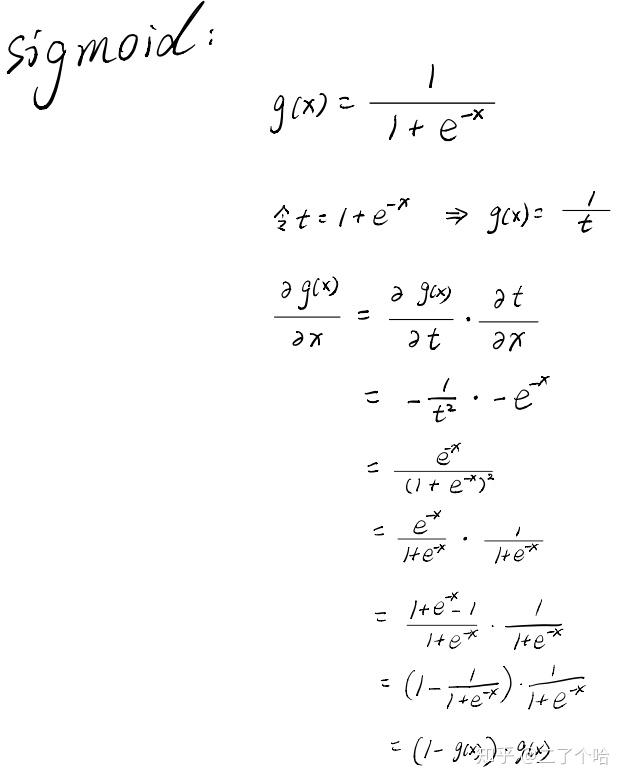 sigmoid:
g(x) = 1 / (1 + e^{-x})
令 t = 1 + e^{-x} ⇒ g(x) = 1 / t
∂g(x) / ∂x = ∂g(x) / ∂t · ∂t / ∂x
= - 1 / t² · - e^{-x}
= e^{-x} / (1 + e^{-x})²
= e^{-x} / (1+e^{-x}) · 1 / (1+e^{-x})
= (1+e^{-x} - 1) / (1+e^{-x}) · 1 / (1+e^{-x})
= (1 - 1 / (1+e^{-x})) · 1 / (1+e^{-x})
= (1 - g(x)) · g(x)
知乎 @二了个哈